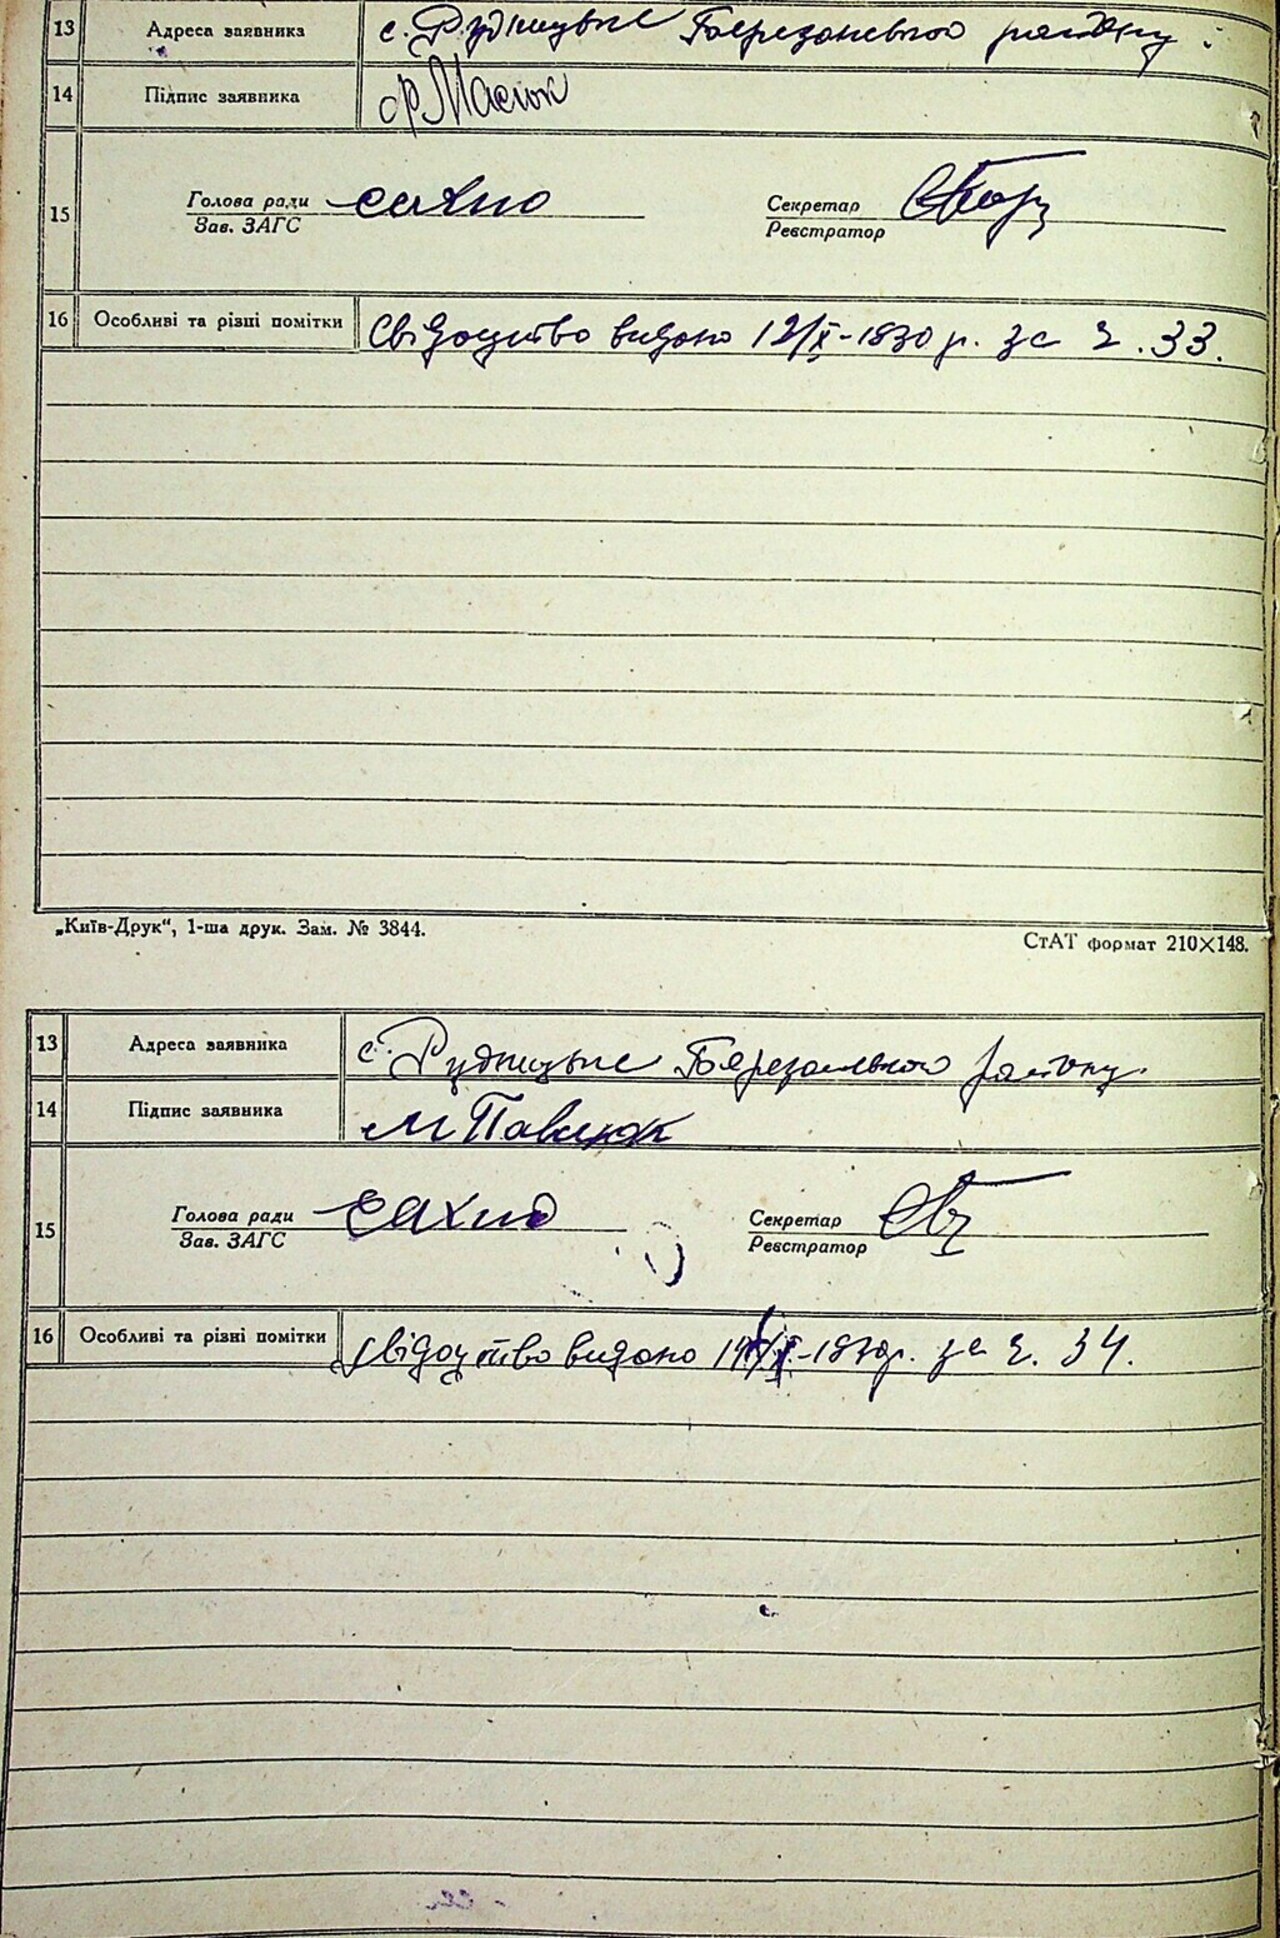 13 Адреса заявника с. Рудницьке Березанського району.
14 Підпис заявника Ф. Масюк
15 Голова ради Сахно Секретар
Зав. ЗАГС Реєстратор
16 Особливі та різні помітки Свідоцтво видано 12/X-1930 р. за ч. 33.
„Київ-Друк“, 1-ша друк. Зам. № 3844.
СтАТ формат 210×148.
13 Адреса заявника с. Рудницьке Березанського району.
14 Підпис заявника М Павлюк
15 Голова ради Сахно Секретар
Зав. ЗАГС Реєстратор
16 Особливі та різні помітки Свідоцтво видано 1930р. за ч. 34.